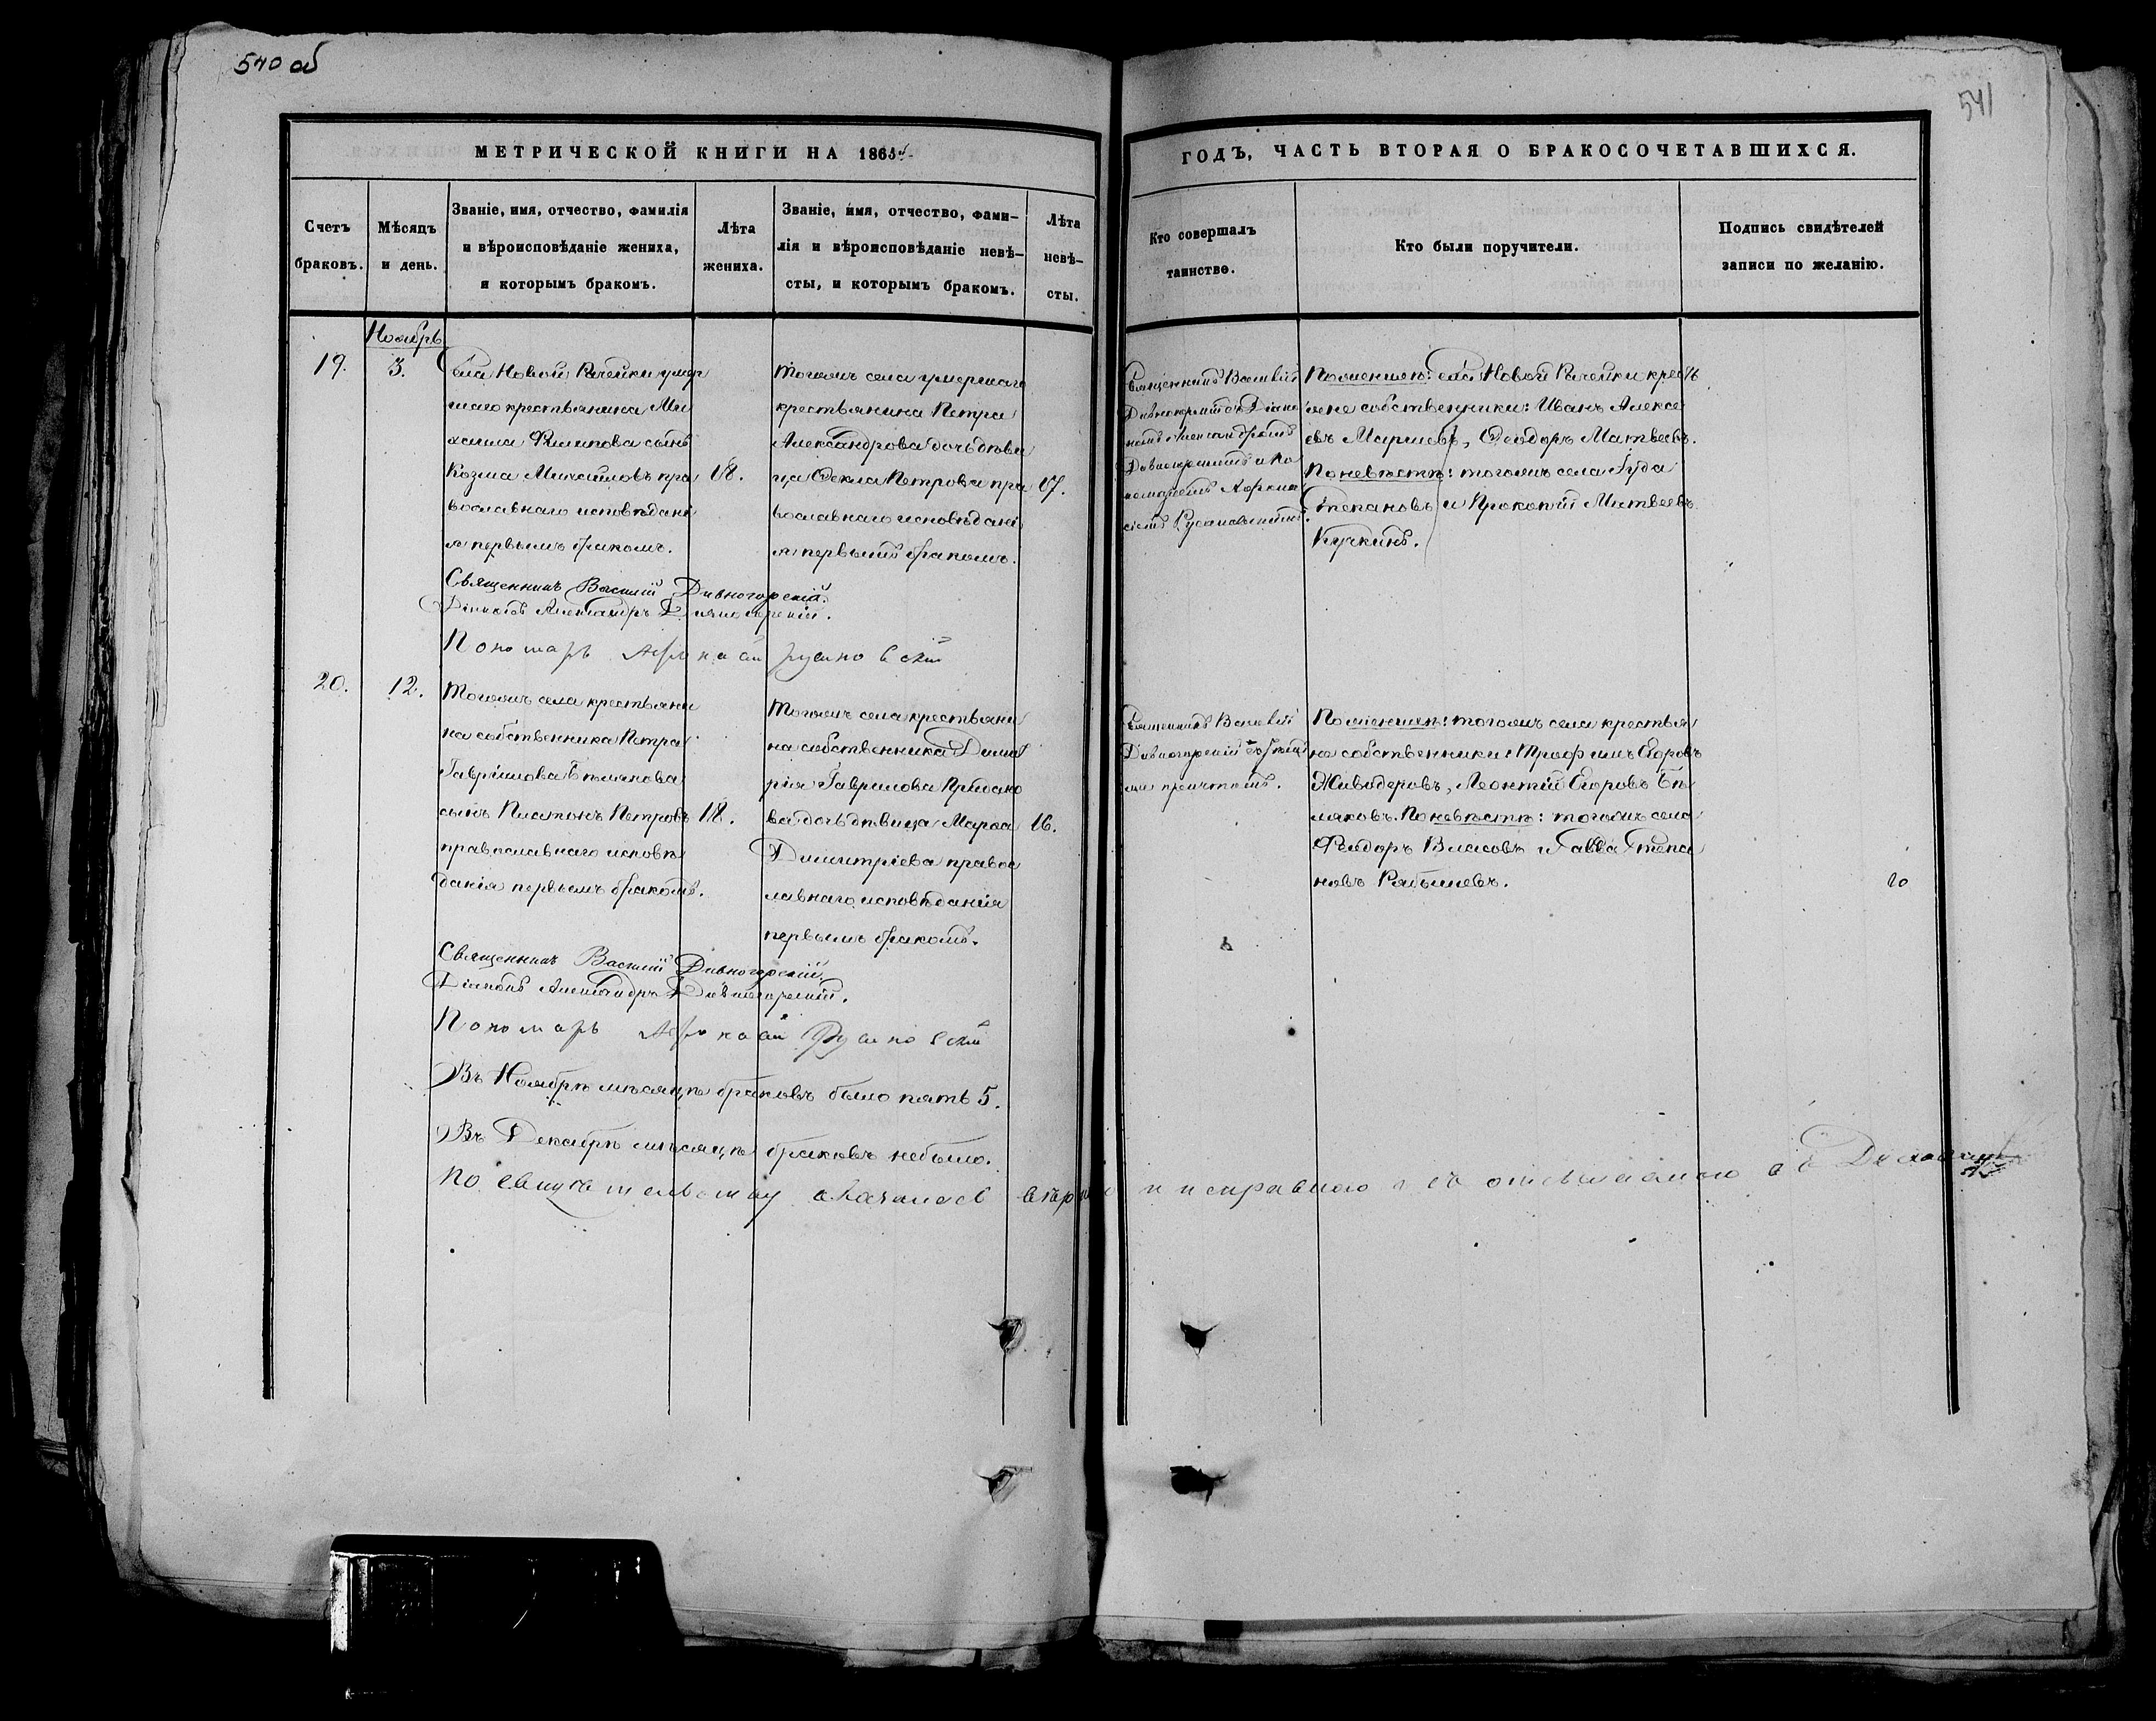 540 об
541
МЕТРИЧЕСКОЙ КНИГИ НА 1865
ГОДЪ, ЧАСТЬ ВТОРАЯ О БРАКОСОЧЕТАВШИХСЯ.
Счетъ
браковъ.
Мѣсяцъ
и день.
Званіе, имя, отчество, фамилія
и вѣроисповѣданіе жениха,
и которымъ бракомъ.
Лѣта
жениха.
Званіе, имя, отчество, фами-
лія и вѣроисповѣданіе невѣ-
сты, и которымъ бракомъ.
Лѣта
невѣ-
сты.
Кто совершалъ
таинство.
Кто были поручители.
Подпись свидѣтелей
записи по желанію.
Ноябрь
19.
3.
Села Новой Рачейки умер
шаго крестьянина Ми
хаила Филипова сынъ
Козма Михайловъ пра
вославнаго исповѣдані
я первымъ бракомъ.
18.
Тогожъ села умершаго
крестьянина Петра
Александрова дочь дѣви
ца Ѳекла Петрова пра
вославнаго исповѣдані
я первымъ бракомъ.
17.
Священникъ Василій
Дивногорскій съ Діако
номъ Александромъ
Дивногорскимъ и По
номаремъ
Русановскимъ.
По женихѣ: села Новой Рачейки кресть
яне собственники: Иванъ Алексе
евъ, Ѳеодоръ Матвеевъ.
По невѣстѣ: тогожъ села Іуда
Степановъ и Прокопій Матвеевъ
Кучкинъ.
Священникъ Василій Дивногорскій.
Діаконъ Александръ Дивногорскій.
Пономарь
20.
12.
Тогожъ села крестьяни
на собственника Петра
Гавріилова Бѣлякова
сынъ Платонъ Петровъ
православнаго исповѣ
данія первымъ бракомъ.
18.
Тогожъ села крестьяни
на собственника Димит
рія Гаврилова Придано
ва дочь дѣвица Марѳа
Димитріева правос
лавнаго исповѣданія
первымъ бракомъ.
16.
Священникъ Василій
Дивногорскій съ
причтомъ.
По женихѣ: тогожъ села крестья
не собственники: Трофимъ Егоровъ
Живодеровъ, Леонтій Егоровъ Бѣ
ляковъ. По невѣстѣ: тогожъ села
Ѳеодоръ Власовъ и Савва Степа
новъ Рябышевъ.
Священникъ Василій Дивногорскій.
Діаконъ Александръ Дивногорскій.
Пономарь
Въ Ноябрѣ мѣсяцѣ браковъ было пять 5.
Въ Декабрѣ мѣсяцѣ браковъ небыло.
По оказалось